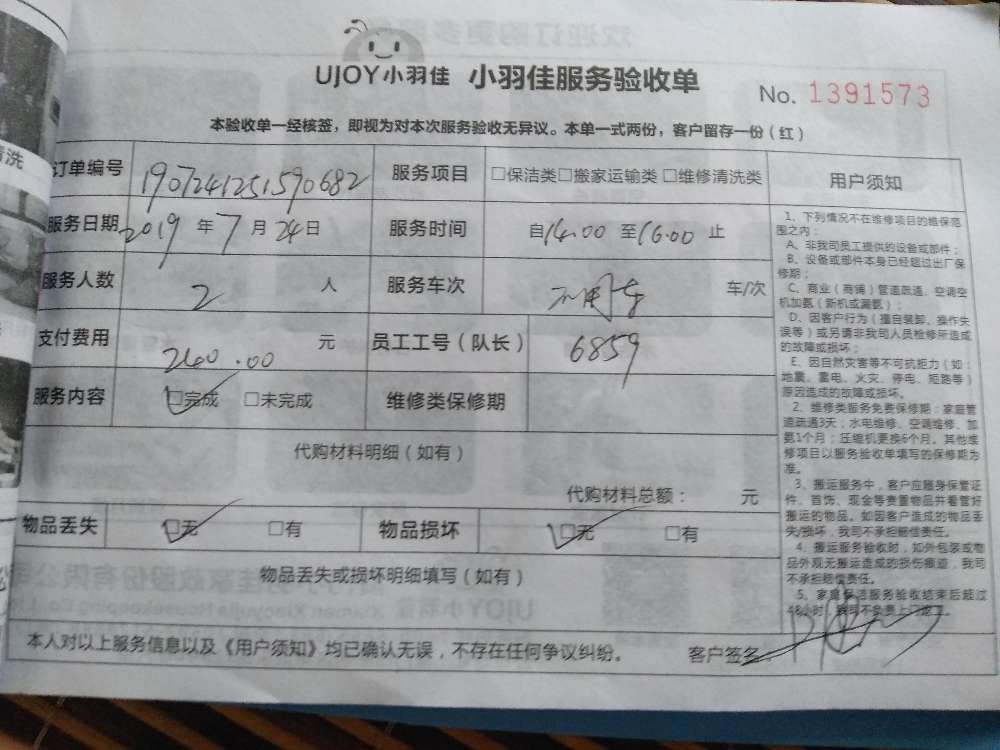 UJOY小羽佳 小羽佳服务验收单
No. 1391573
本验收单一经核签，即视为对本次服务验收无异议。本单一式两份，客户留存一份（红）
订单编号 190724125159068​2 服务项目 □保洁类□搬家运输类□维修清洗类
服务日期 2019 年 7 月 24 日 服务时间 自14.00 至16.00 止
服务人数 2 人 服务车次 不用车 车/次
支付费用 240.00 元 员工工号（队长） 6859
服务内容 □完成 □未完成 维修类保修期
代购材料明细（如有）
代购材料总额： 元
物品丢失 □无 □有 物品损坏 □无 □有
物品丢失或损坏明细填写（如有）
本人对以上服务信息以及《用户须知》均已确认无误，不存在任何争议纠纷。 客户签名：
用户须知
1、下列情况不在维修项目的维保范
围之内：
A、非我司员工提供的设备或部件；
B、设备或部件本身已经超过出厂保
修期；
C、商业（商铺）管道疏通、空调空
机加氨（新机或漏氨）；
D、因客户行为（擅自装卸、操作失
误等）或另请非我司人员检修所造成
的故障或损坏；
E、因自然灾害等不可抗拒力（如：
地震、雷电、火灾、停电、短路等）
原因造成的故障或损坏。
2、维修类服务免费保修期：家庭管
道疏通3天；水电维修、空调维修、加
氨1个月；压缩机更换6个月。其他维
修项目以服务验收单填写的保修期为
准。
3、搬运服务中，客户应随身保管证
件、首饰、现金等贵重物品并看管好
搬运的物品。如因客户造成的物品丢
失/损坏，我司不承担赔偿责任。
4、搬运服务验收时，如外包装或物
品外观无搬运造成的损伤痕迹，我司
不承担赔偿责任。
5、家庭保洁服务验收结束后超过
48小时，我司不负责上门返工。
清洗